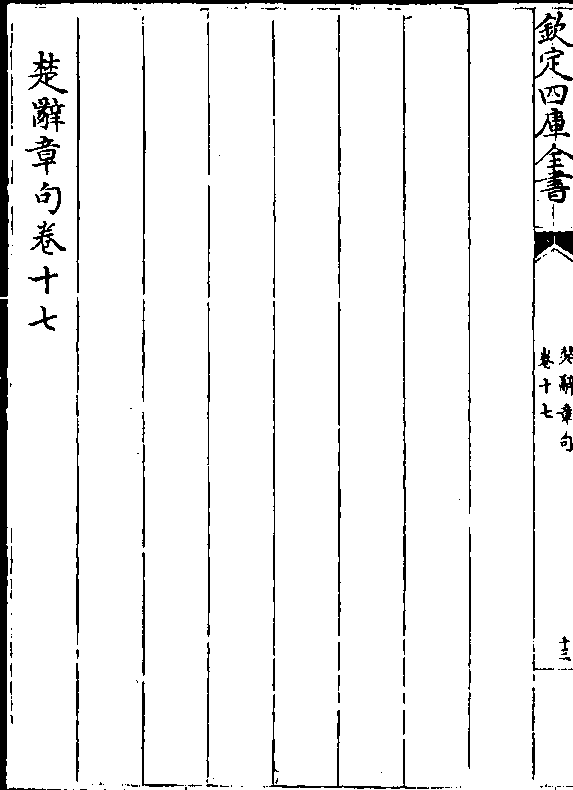 欽定四庫全書
楚辭章句
卷十七
十三
楚辭章句卷十七